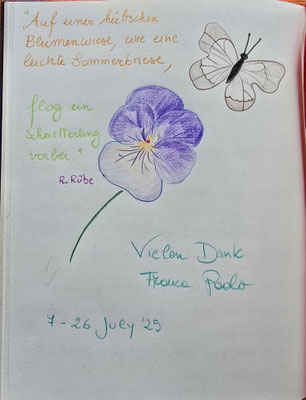 "Auf einer hübschen
Blumenwiese, wie eine
leichte Sommerbriese,
flog ein
Schmetterling
vorbei"
R. Rübe
Vielen Dank
Franca Paolo
7 - 26 July '25